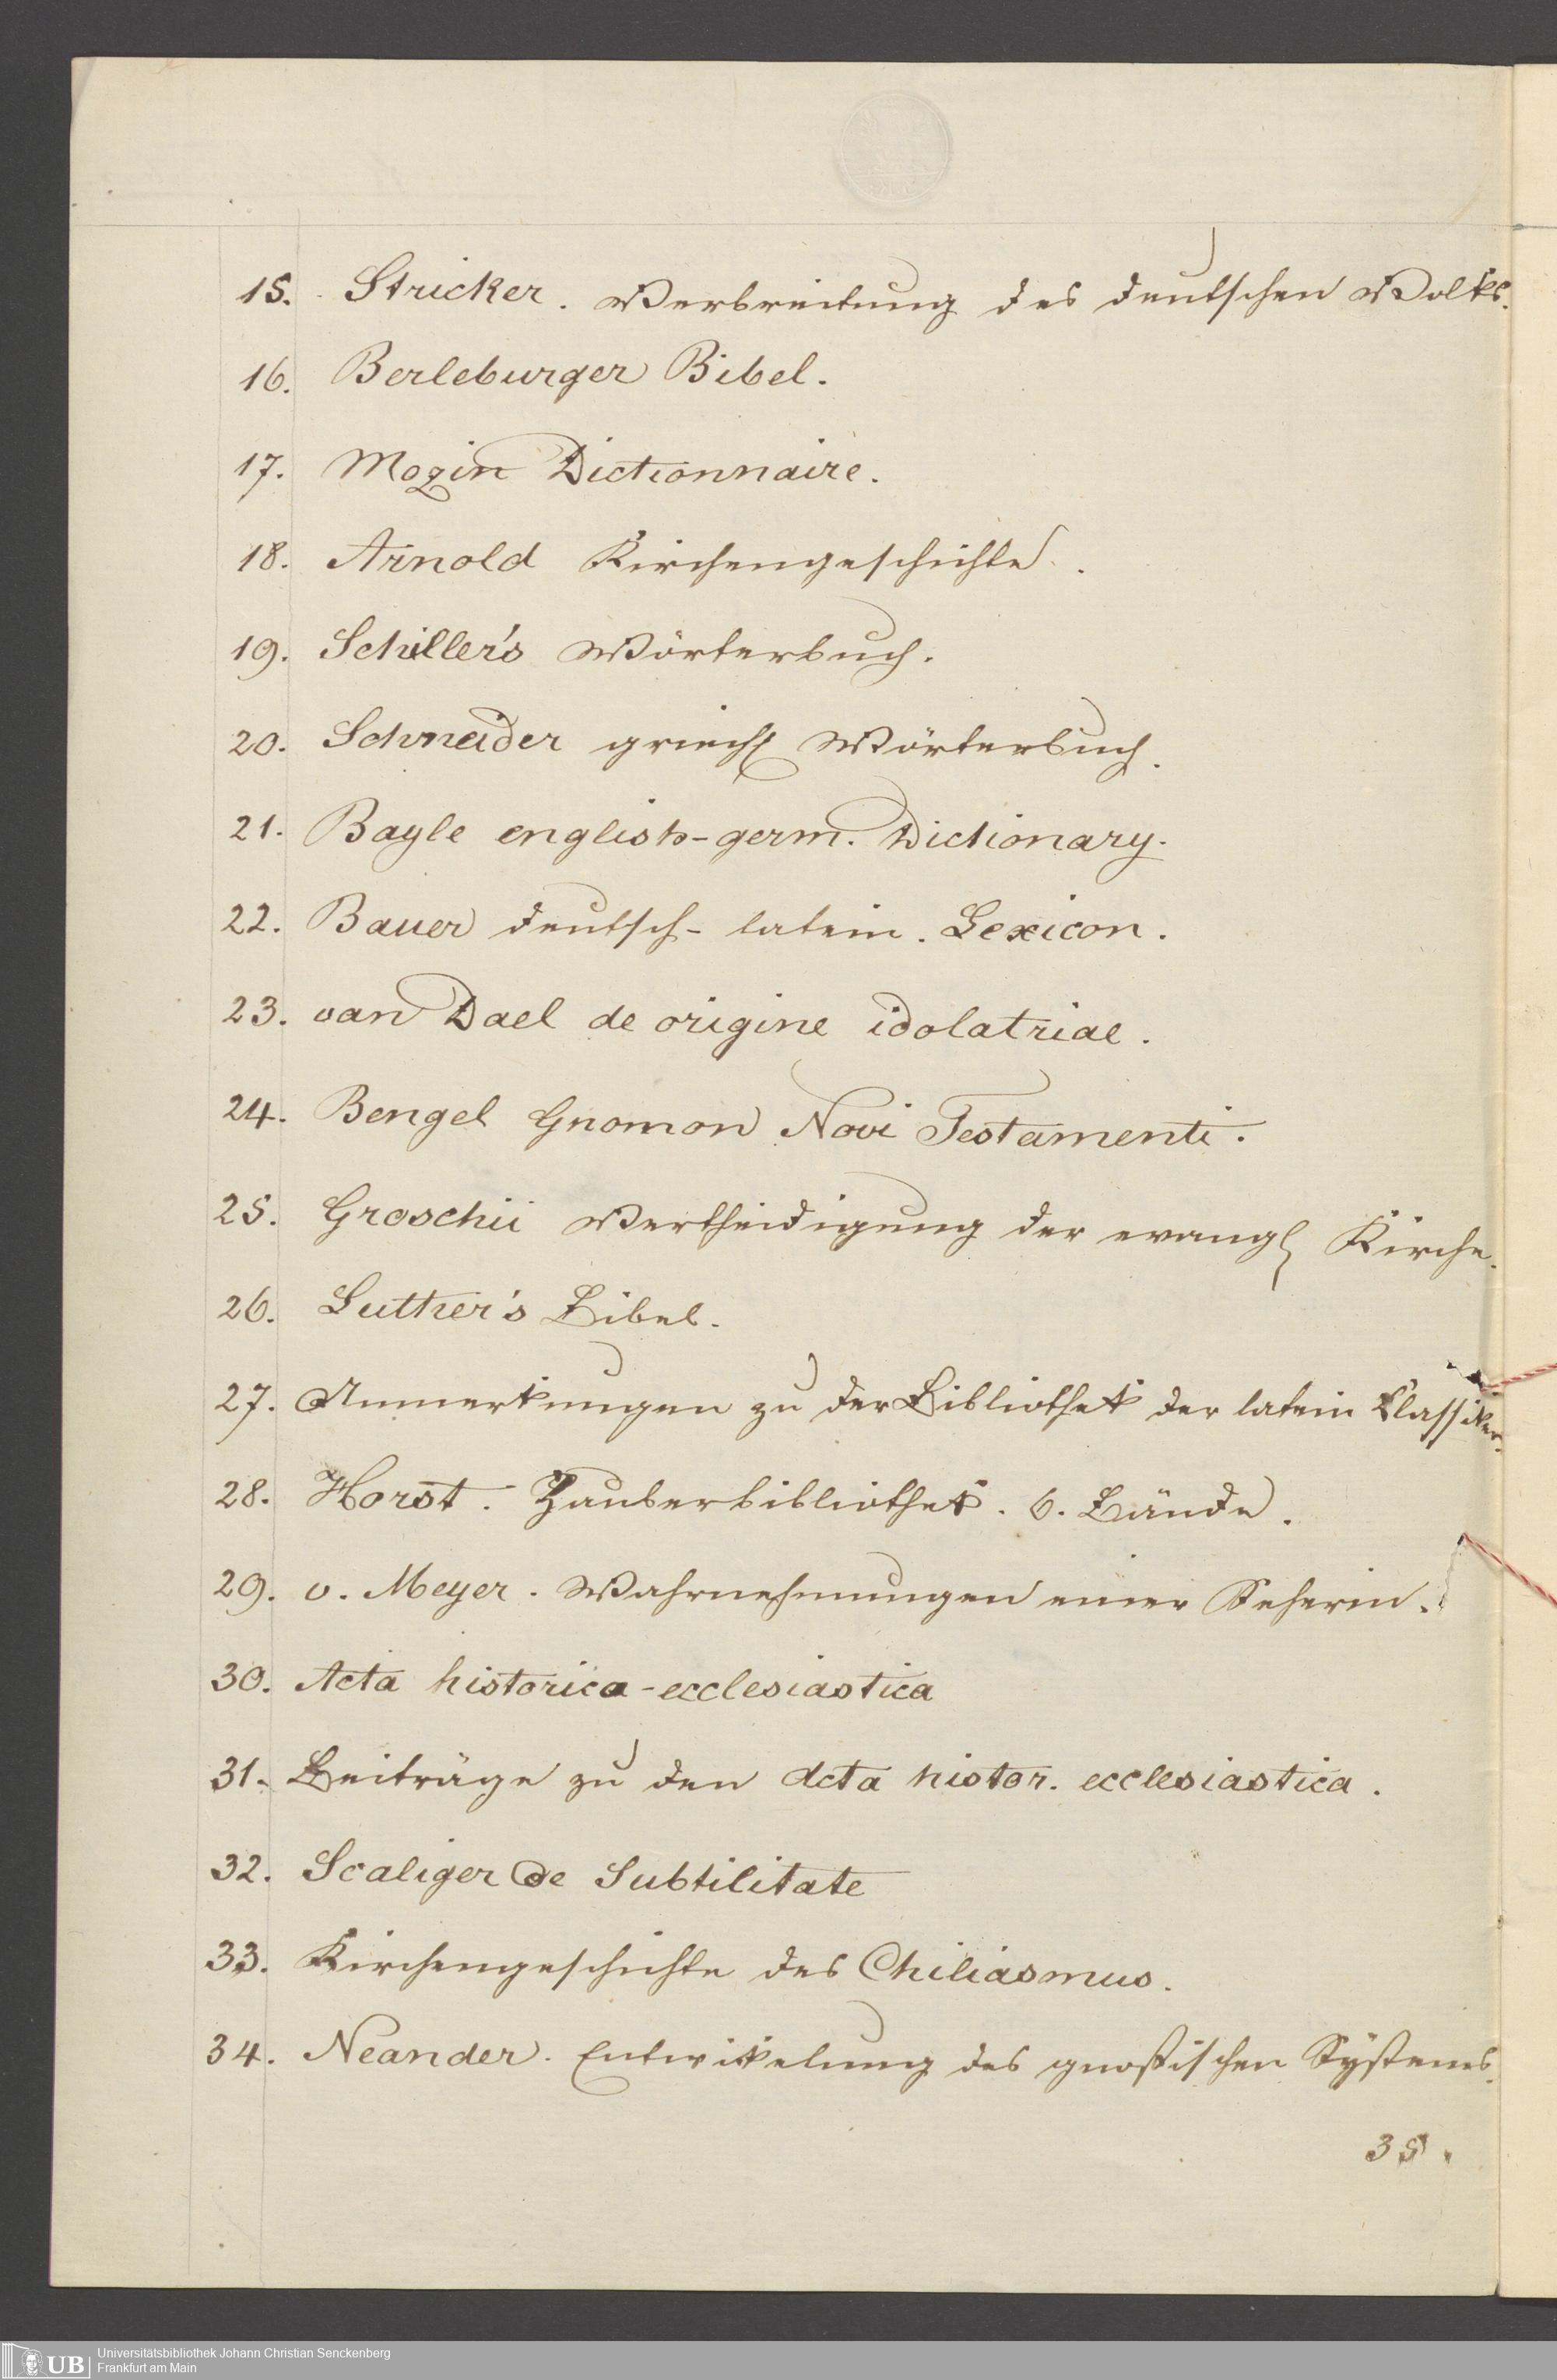 15. Stricker. Verbreitung des deutschen Volks.
16. Berleburger Bibel.
17. Mozin Dictionnaire.
18. Arnold Kirchengeschichte.
19. Schiller's Wörterbuch.
20. Schneider griech Wörterbuch.
21. Bayle english-germ. Dictionary.
22. Bauer deutsch-latein. Lexicon.
23. van Dael de origine idolatriae.
24. Bengel Gnomon Novi Testamenti.
25. Groschii Vertheidigung der evangl Kirche.
26. Luther's Bibel.
27. Anmerkungen zu der Bibliothek der latein Klassiker.
28. Horst. Zauberbibliothek. 6. Bände.
29. v. Meyer. Wahrnehmungen einer Seherin.
30. Acta historica-ecclesiastica
31. Beiträge zu den Acta histor. ecclesiastica.
32. Scaliger de Subtilitate
33. Kirchengeschichte des Chiliasmus.
34. Neander. Entwikelung des gnostischen Systems.
35.
UB
Universitätsbibliothek Johann Christian Senckenberg
Frankfurt am Main